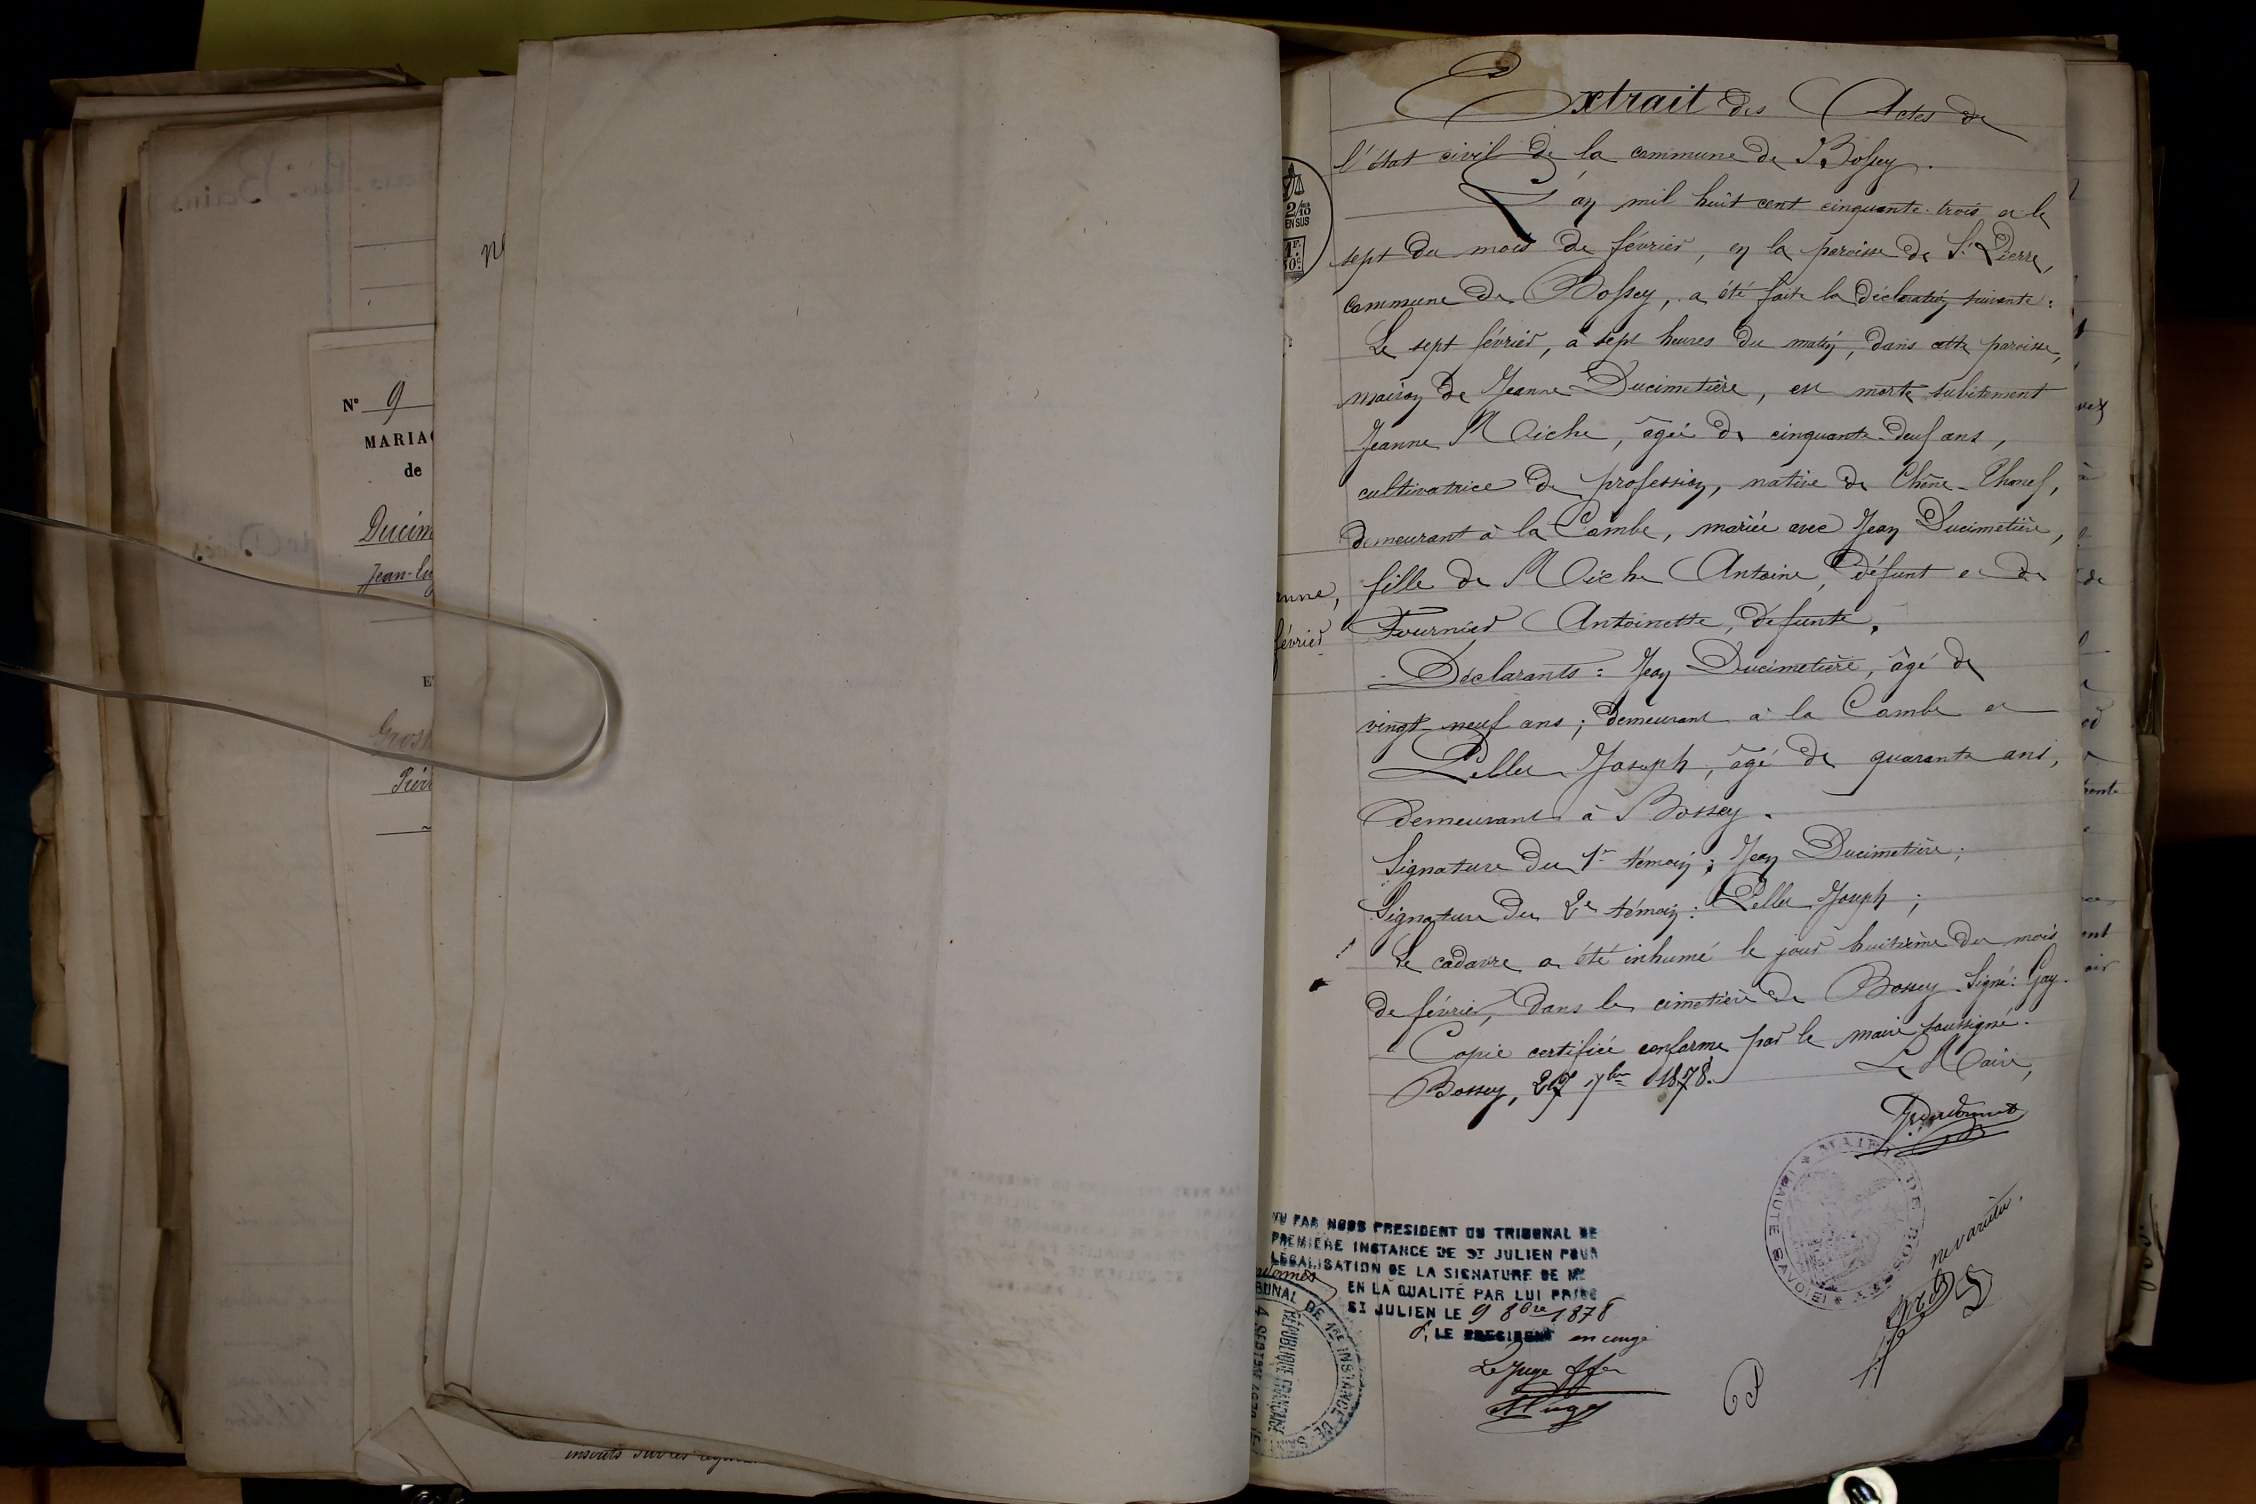 N° 9
MARIAG
de
Ducim
Jean-Eug
ET
Gros
Pier
Extrait des Actes de
l'état civil de la commune de Bossey.
L'an mil huit cent cinquante-trois et le
sept du mois de février, en la paroisse de St Pierre,
commune de Bossey, a été faite la déclaration suivante:
Le sept février, à sept heures du matin, dans cette paroisse,
maison de Jeanne Ducimetière, est morte subitement
Jeanne Miche, âgée de cinquante-deux ans,
cultivatrice de profession, native de Chêne-Thonex,
demeurant à la Combe, mariée avec Jean Ducimetière,
fille de Miche Antoine, défunt et de
Fournier Antoinette, défunte.
Déclarants: Jean Ducimetière, âgé de
vingt-neuf ans; demeurant à la Combe et
Pellet Joseph, âgé de quarante ans,
demeurant à Bossey.
Signature du 1er témoin: Jean Ducimetière;
Signature du 2e témoin: Pellet Joseph;
Le cadavre a été inhumé le jour huitième du mois
de février, dans le cimetière de Bossey. Signé: Gay.
Copie certifiée conforme par le maire soussigné.
Bossey, 27 7bre 1878.
Le Maire,
anne,
février
2/10
EN SUS
MAIRIE DE BOSSEY
(HAUTE SAVOIE)
ne varietur.
VU PAR NOUS PRESIDENT DU TRIBUNAL DE
PREMIERE INSTANCE DE ST JULIEN POUR
LEGALISATION DE LA SIGNATURE DE MR
EN LA QUALITÉ PAR LUI PRISE
ST JULIEN LE 9 8bre 1878
P. LE PRESIDENT en congé
Le Juge
TRIBUNAL DE 1RE INSTANCE DE
RÉPUBLIQUE FRANÇAISE